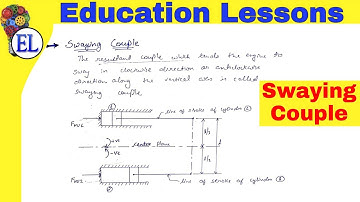 Education Lessons
EL
→ Swaying Couple
The resultant couple which tends the engine to
sway in clockwise direction or anticlockwise
direction along the vertical axis is called
swaying couple
Swaying
Couple
line of stroke of cylinder ①
+ve
-ve
center plane
line of stroke of cylinder